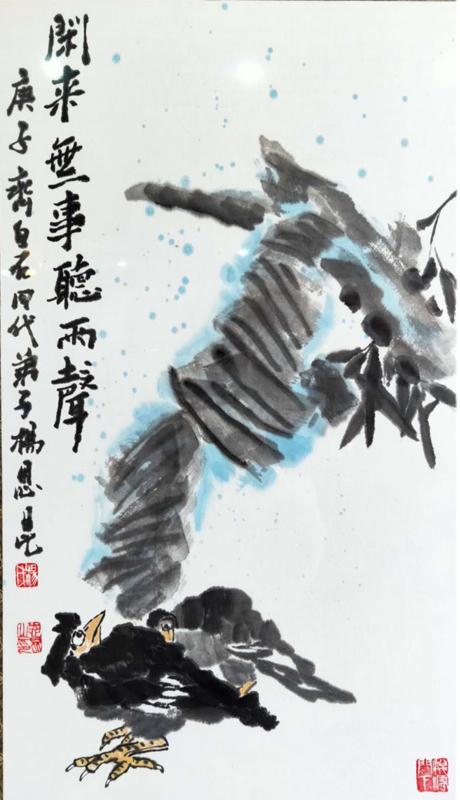 閑来無事聽雨聲
庚子齊白石四代弟子楊恩亮